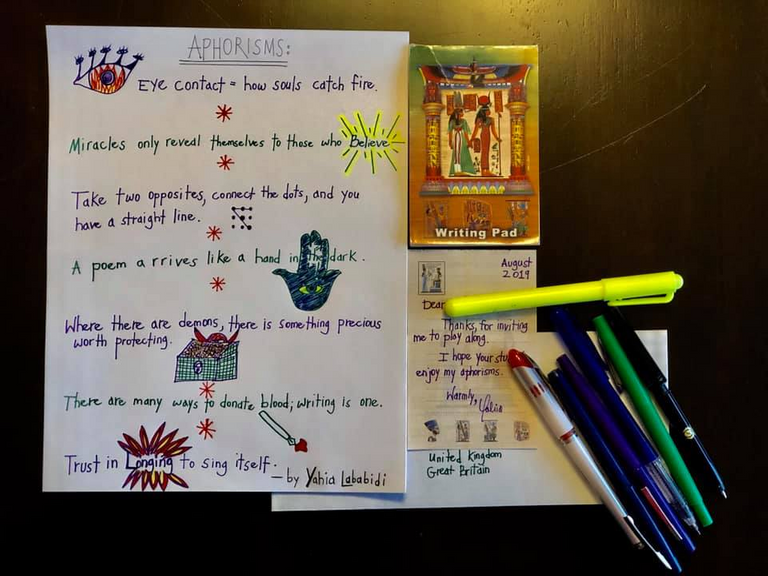 APHORISMS:
Eye contact = how souls catch fire.
Miracles only reveal themselves to those who Believe
Take two opposites, connect the dots, and you
have a straight line.
A poem arrives like a hand in the dark.
Where there are demons, there is something precious
worth protecting.
There are many ways to donate blood; writing is one.
Trust in Longing to sing itself.
— by Yahia Lababidi
Writing Pad
August
2019
Dear
Thanks, for inviting
me to play along.
I hope your
enjoy my aphorisms.
Warmly,
Yahia
United Kingdom
Great Britain